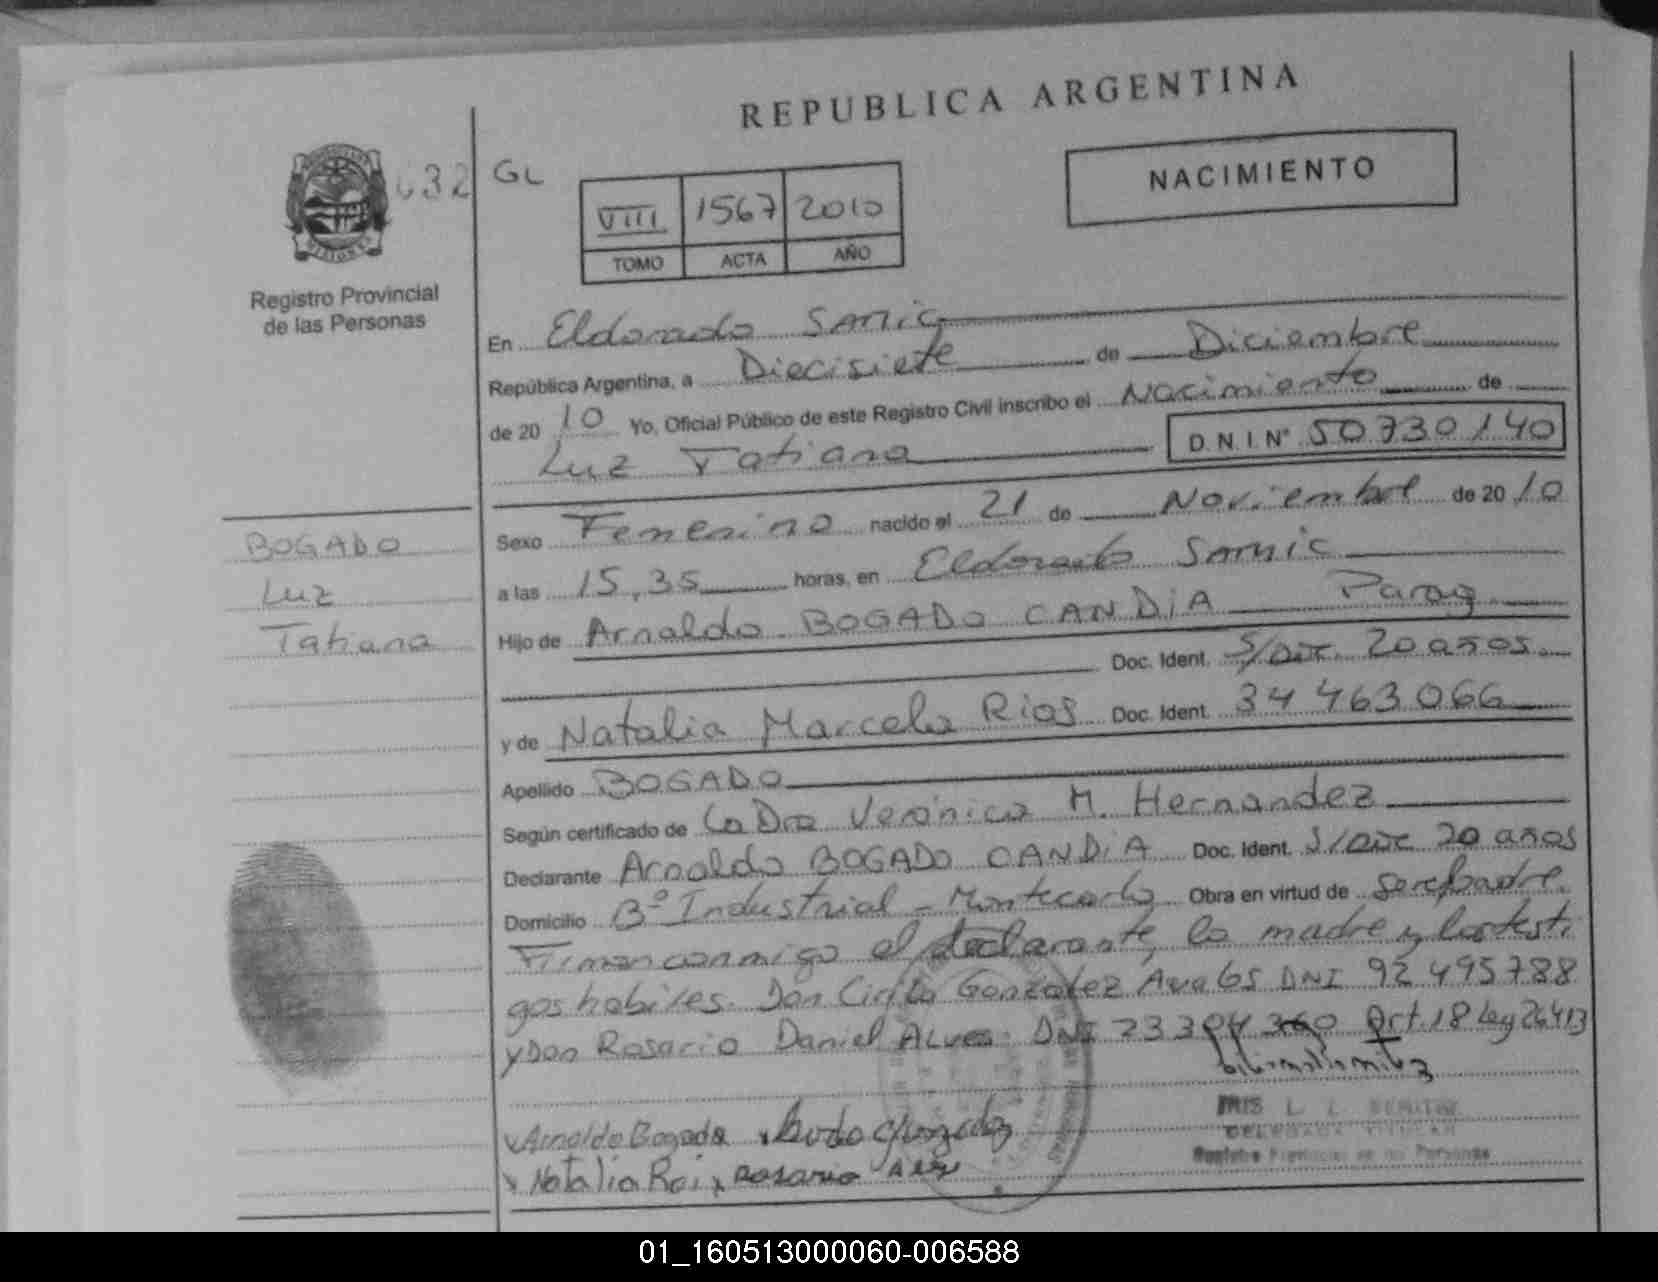 REPUBLICA ARGENTINA
NACIMIENTO
632 GL
VIII 1567 2010
TOMO ACTA AÑO
Registro Provincial
de las Personas
En Eldorado Samic
República Argentina, a Diecisiete de Diciembre
de 20 10 Yo, Oficial Público de este Registro Civil inscribo el Nacimiento de
Luz Tatiana D.N.I.Nº 50730140
BOGADO
Luz
Tatiana
Sexo Femenino nacido el 21 de Noviembre de 20 10
a las 15,35 horas, en Eldorado Samic
Hijo de Arnaldo BOGADO CANDIA Parag
Doc. Ident. S/Doc 20 años
y de Natalia Marcela Rios Doc. Ident. 34 463 066
Apellido BOGADO
Según certificado de La Dra Verónica M. Hernandez
Declarante Arnaldo BOGADO CANDIA Doc. Ident. S/Doc 20 años
Domicilio Bº Industrial - Montecarlo Obra en virtud de Ser el Padre.
Firman conmigo el declarante, la madre y los testi
gos habiles. Don Cirilo Gonzalez Ava 65 DNI 92 495 788
y Don Rosario Daniel Alvez DNI 23 304 360 Art. 18 Ley 26413
Arnaldo Bogado
Natalia Roi Rosario
IRIS L.
DELEGADA TITULAR
Registro Provincial de las Personas
01_160513000060-006588